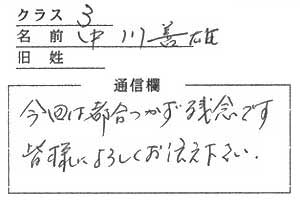 クラス 3
名前 中川善雄
旧姓
通信欄
今回は都合つかず残念です
皆様によろしくお伝え下さい.